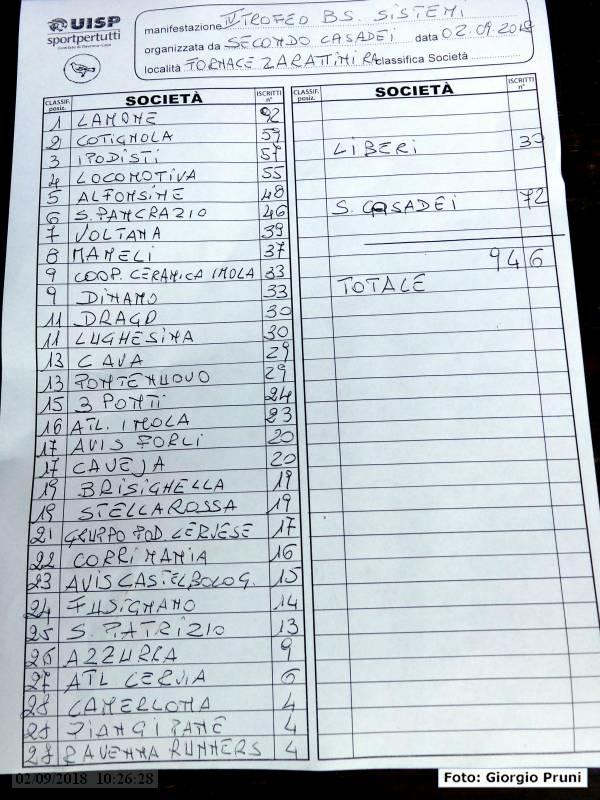 UISP
sportpertutti
manifestazione V TROFEO BS. SISTEMI
organizzata da SECONDO CASADEI data 02.09.2018
località FORNACE ZARATTINI RA classifica Società
CLASSIF. posiz. SOCIETÀ ISCRITTI n°
1 LAMONE 92
2 COTIGNOLA 59
3 IPODISTI 57
4 LOCOMOTIVA 55
5 ALFONSINE 48
6 S. PANCRAZIO 46
7 VOLTANA 39
8 MAMELI 37
9 COOP. CERAMICA IMOLA 33
9 DINAMO 33
11 DRAGO 30
11 LUGHESINA 30
13 CAVA 29
13 PONTENUOVO 29
15 3 PONTI 24
16 ATL. IMOLA 23
17 AVIS FORLI 20
17 CAVEJA 20
19 BRISIGHELLA 19
19 STELLAROSSA 19
21 GRUPPO POD. CERVESE 17
22 CORRIMANIA 16
23 AVIS CASTELBOLOG. 15
24 FUSIGNANO 14
25 S. PATRIZIO 13
26 AZZURRA 9
27 ATL CERVIA 6
28 CAMERLONA 4
28 PIANGIPANE 4
28 RAVENNA RUNNERS 4
CLASSIF. posiz. SOCIETÀ ISCRITTI n°
LIBERI
S. CASADEI 72
946
TOTALE
02/09/2018 10:26:28
Foto: Giorgio Pruni